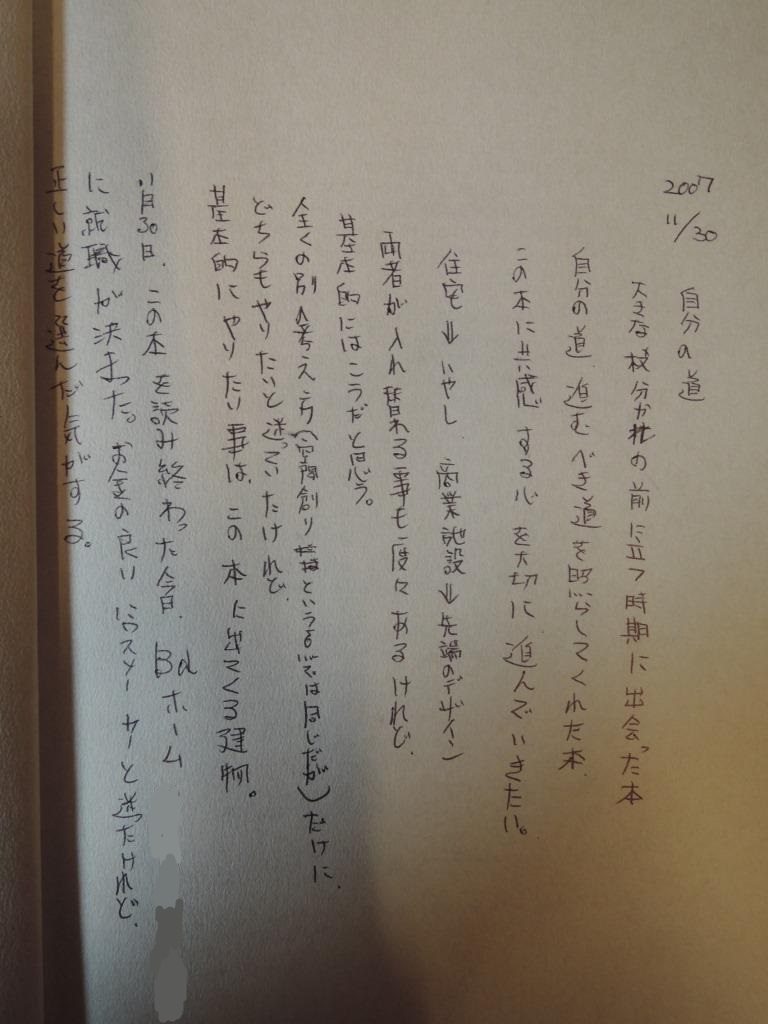 2007
11/30
自分の道
大きな枝分かれの前に立つ時期に出会った本
自分の道、進むべき道を照らしてくれた本、
この本に共感する心を大切に進んでいきたい。
住宅⇒いやし 商業施設⇒先端のデザイン
両者が入れ替わる事も度々あるけれど、
基本的にはこうだと思う。
全くの別の考え方(空間創りというよでは同じだが)だけに、
どちらもやりたいと迷っていたけれど、
基本的にやりたい事は、この本に出てくる建物。
11月30日、この本を読み終わった今日、Bdホーム
に就職が決まった。お金の良いハウスメーカーと迷たけれど、
正しい道を選んだ気がする。